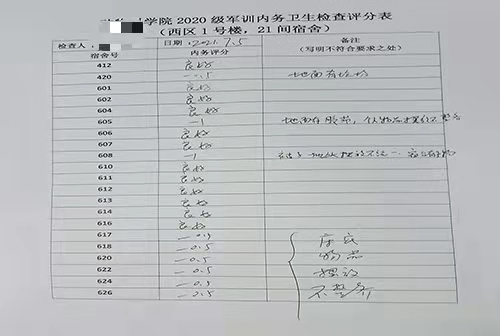 学院 2020 级军训内务卫生检查评分表
（西区 1 号楼，21 间宿舍）
检查人： 日期：2021.7.5 备注
宿舍号 内务评分 （写明不符合要求之处）
412 良好
420 -0.5 地面有
601 良好
602 良好
604 良好
605 -1 地面有
606 良好
607 良好
608 -1
610 良好
611 良好
612 良好
613 良好
614 良好
616 良好
617 -0.5 床底
618 -0.5 物品
620 -0.5 摆放
622 -0.5 不整齐
624 -0.5
626 -0.5